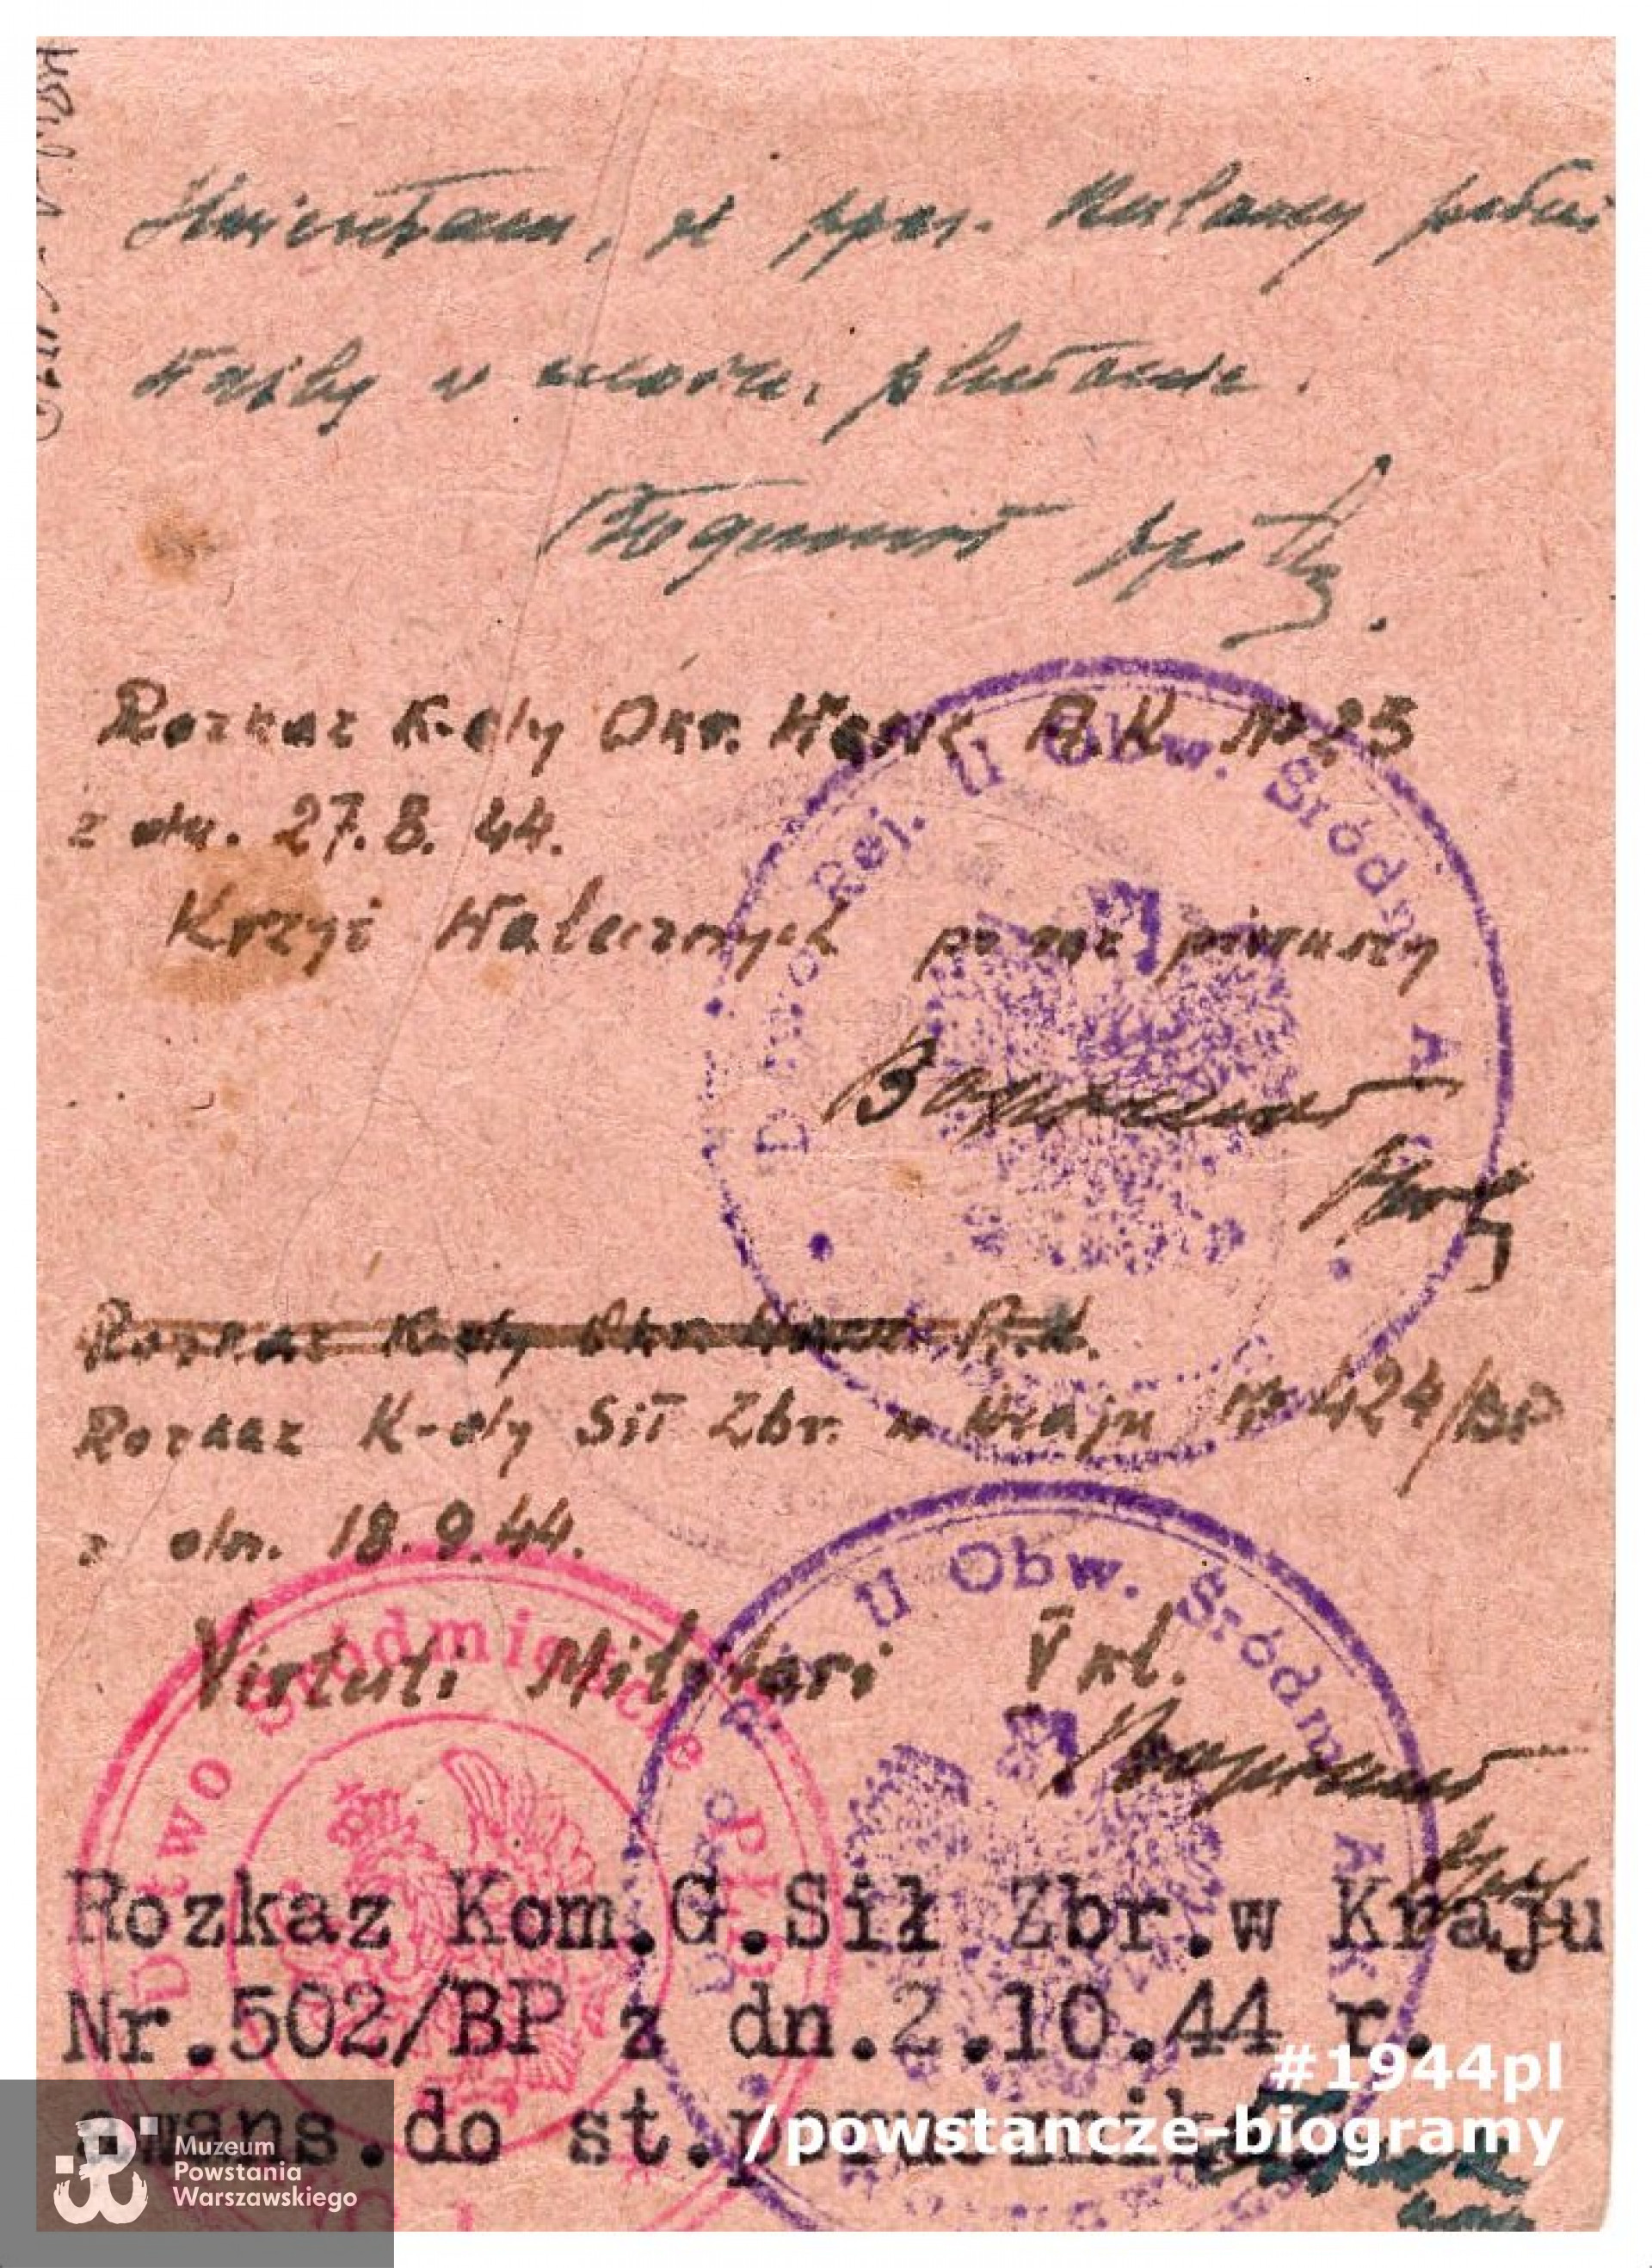 Stwierdzam, że ppor. pełni
służbę w moim plutonie.
Rozkaz K-dy Okr. Warsz A.K. Nr 25
z dn. 27.8.44.
Krzyż Walecznych po raz pierwszy
Dtwo Rej. II Obw. Śródm A K
Rozkaz K-dy Okr. Warsz A.K.
Rozkaz K-dy Sił Zbr. w Kraju Nr 424/BP
z dn. 18.9.44.
Virtuti Militari V kl.
II Obw. Śródm A K
Dtwo Śródmieście Płd
Rozkaz Kom.G.Sił Zbr.w Kraju
Nr.502/BP z dn.2.10.44 r.
awans.do st.porucznika
#1944pl
/powstancze-biogramy
Muzeum
Powstania
Warszawskiego